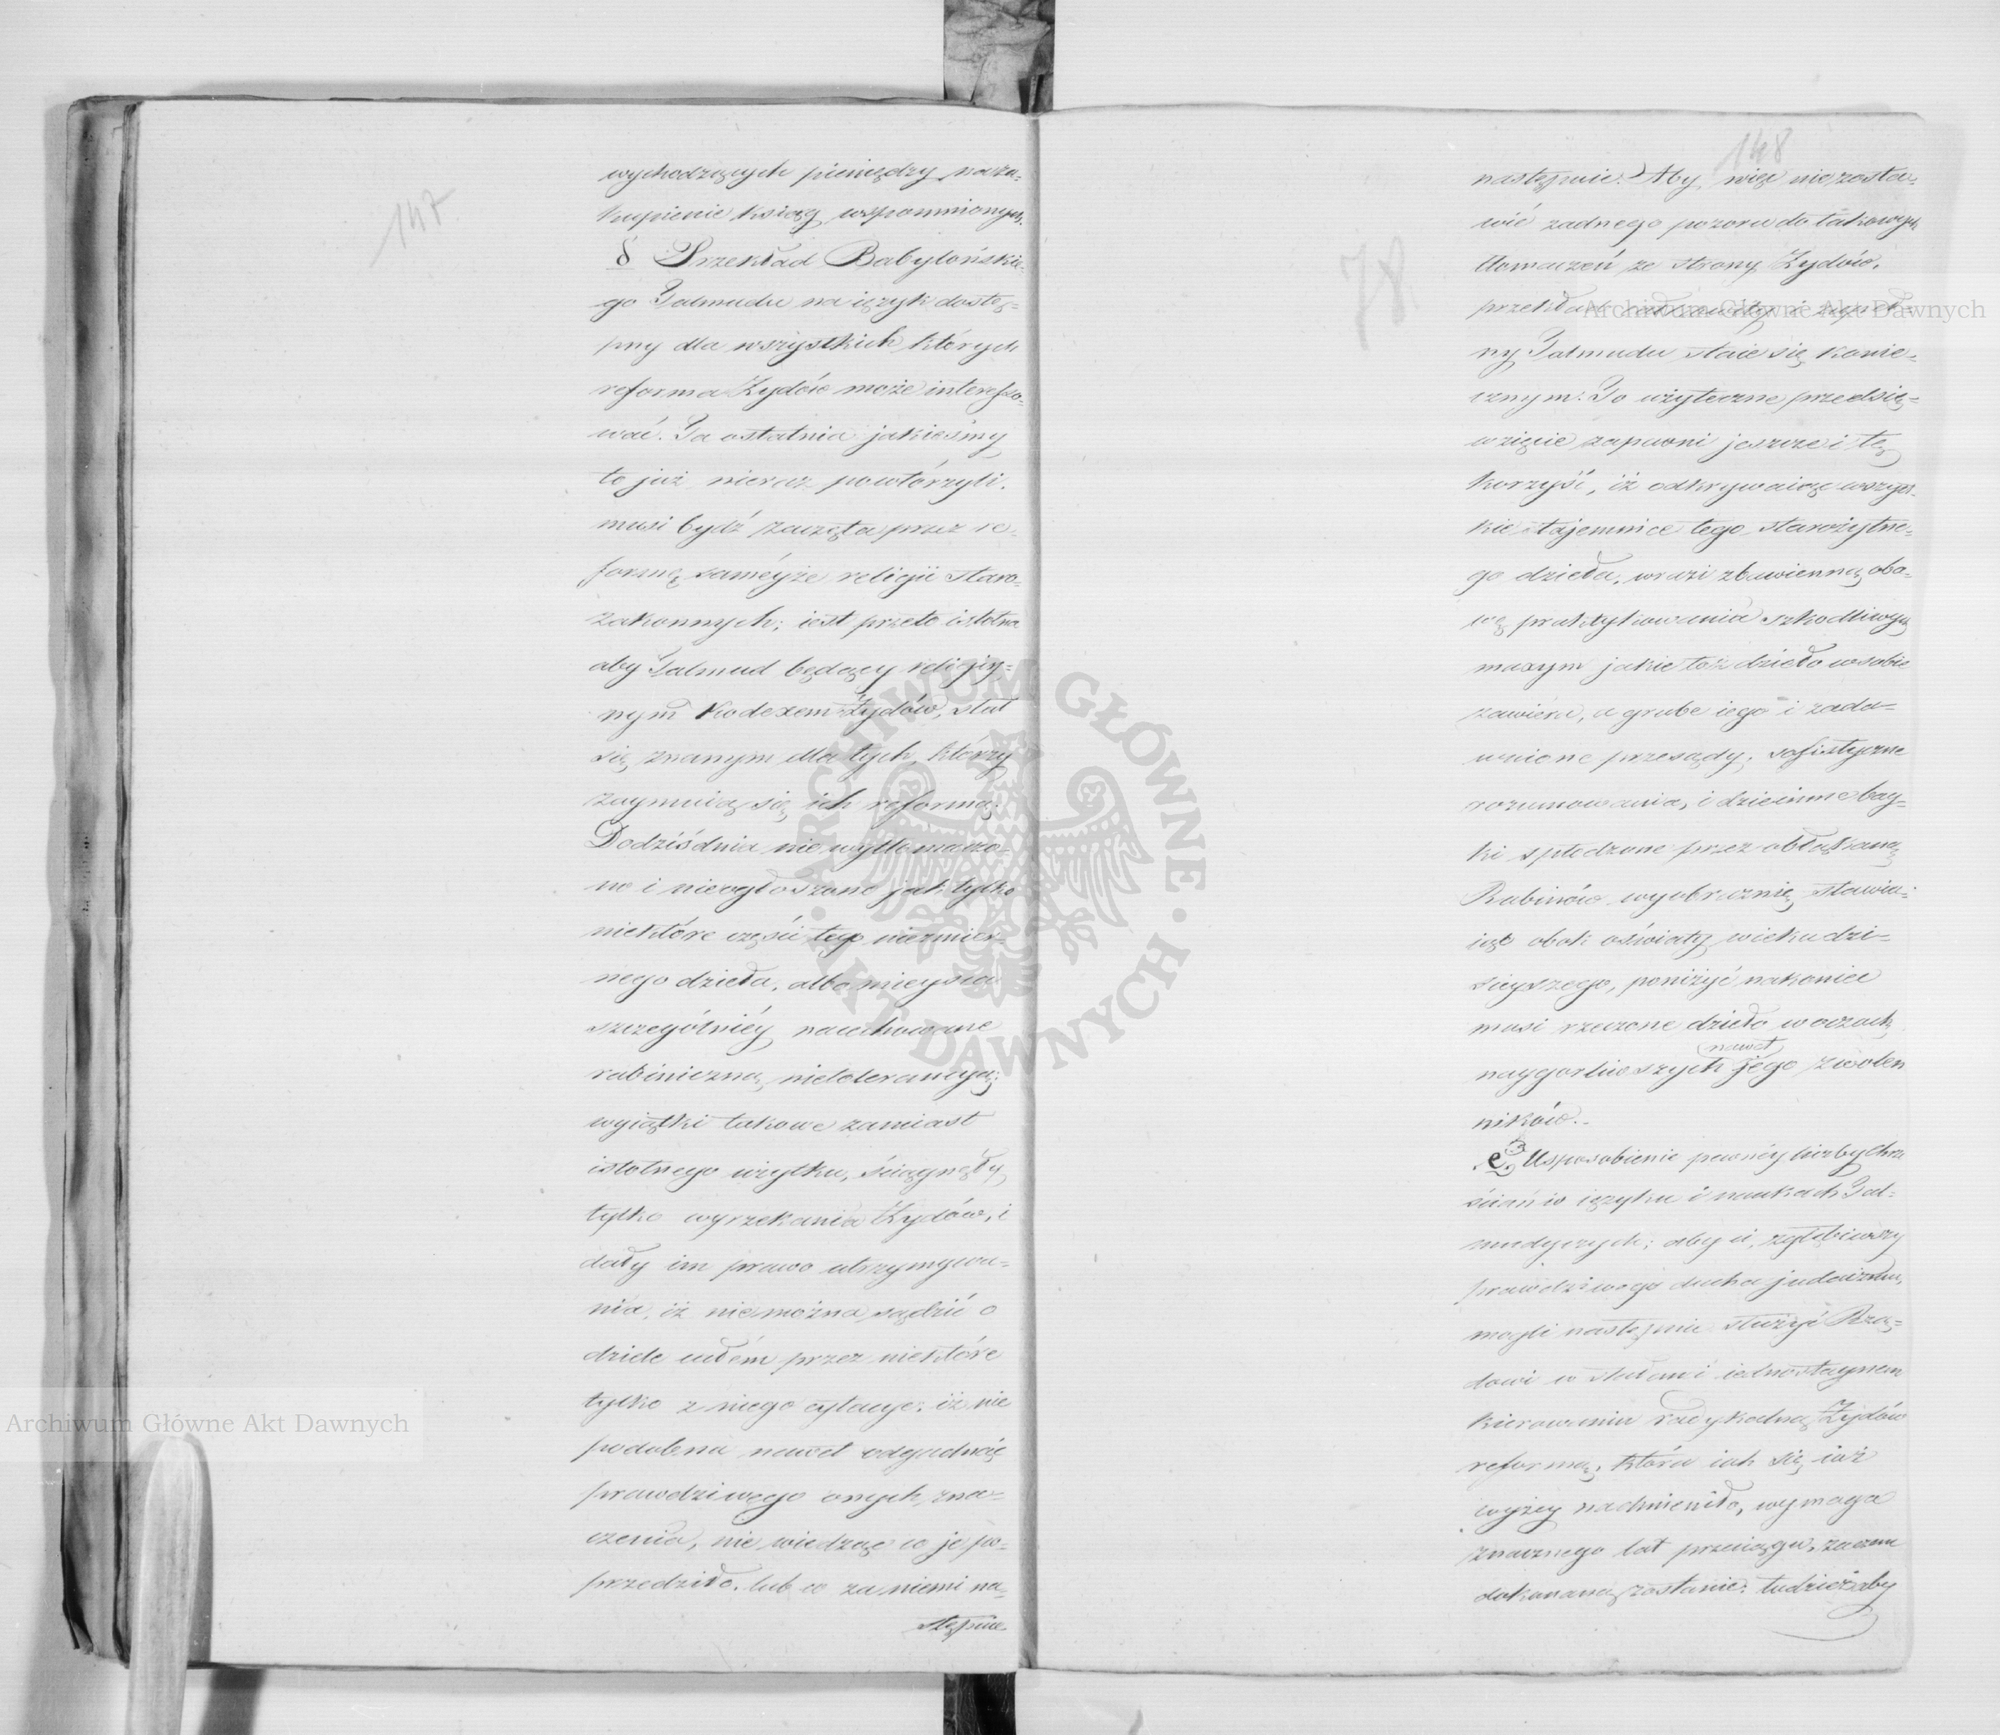 147
wychodzących pieniędzy na za-
kupienie ksiąg wspomnionych.
δ Przekład Babylońskie-
go Talmudu na ięzyk dostę-
pny dla wszystkich których
reforma Żydów może interesso-
wać. Ta ostatnia jakieśmy
to już nieraz powtórzyli,
musi bydź zaczęta przez re-
formę saméyże religii staro-
zakonnych; iest przeto istotna
aby Talmud będący religiy-
nym Kodexem Żydów, stał
się znanym dla tych, którzy
zaymuią się ich reformą;
Do dziś dnia nie wytłomaczo-
no i nie ogłoszono jak tylko
niektóre części tego niezmier-
nego dzieła, albo mieysca
szczególniéy nacechowane
rabiniczną nietolerancyą;
wyiątki takowe zamiast
istotnego użytku, ściągnęły
tylko wyrzekania Żydów, i
dały im prawo utrzymywa-
nia, iż nie można sądzić o
dziele całém przez niektóre
tylko z niego cytacye; iż nie
podobna nawet odgadnąć
prawdziwego onych zna-
czenia, nie wiedząc co je po-
przedziło, lub co za niemi na-
stępuie
148
78
następuie. Aby więc nie zosta-
wić żadnego pozoru do takowych
tłomaczeń ze strony Żydów,
przekład
ny Talmudu staie się konie-
cznym. To użyteczne przedsię-
wzięcie zapewni jeszcze i tę
korzyść, iż odkrywaiąc wszyst-
kie tajemnice tego starożytne-
go dzieła, wrazi zbawienną oba-
wę praktykowania szkodliwych
maxym jakie toż dzieło w sobie
zawiera, a grube iego i zada-
wnione przesądy, sofistyczne
rozumowania, i dziecinne bay-
ki spłodzone przez obłąkaną
Rabinów wyobraźnię, stawia-
iąc obok oświaty wieku dzi-
sieyszego, poniżyć nakoniec
musi rzeczone dzieło w oczach
nawet
naygorliwszych jego zwolen
ników.
e. Usposobienie pewnéy liczby chrze
ścian w ięzyku i naukach Tal-
mudycznych; aby ci, zgłębiwszy
prawdziwego ducha judaizmu,
mogli następnie służyć Rzą-
dowi w stałem i iednostaynem
kierowaniu radykalną Żydów
reformą, która iak się iuż
wyżey nadmieniło, wymaga
znacznego lat przeciągu, zaczem
dokonaną zostanie; tudzież aby
Archiwum Główne Akt Dawnych
Archiwum Główne Akt Dawnych
ARCHIWUM GŁÓWNE
AKT DAWNYCH